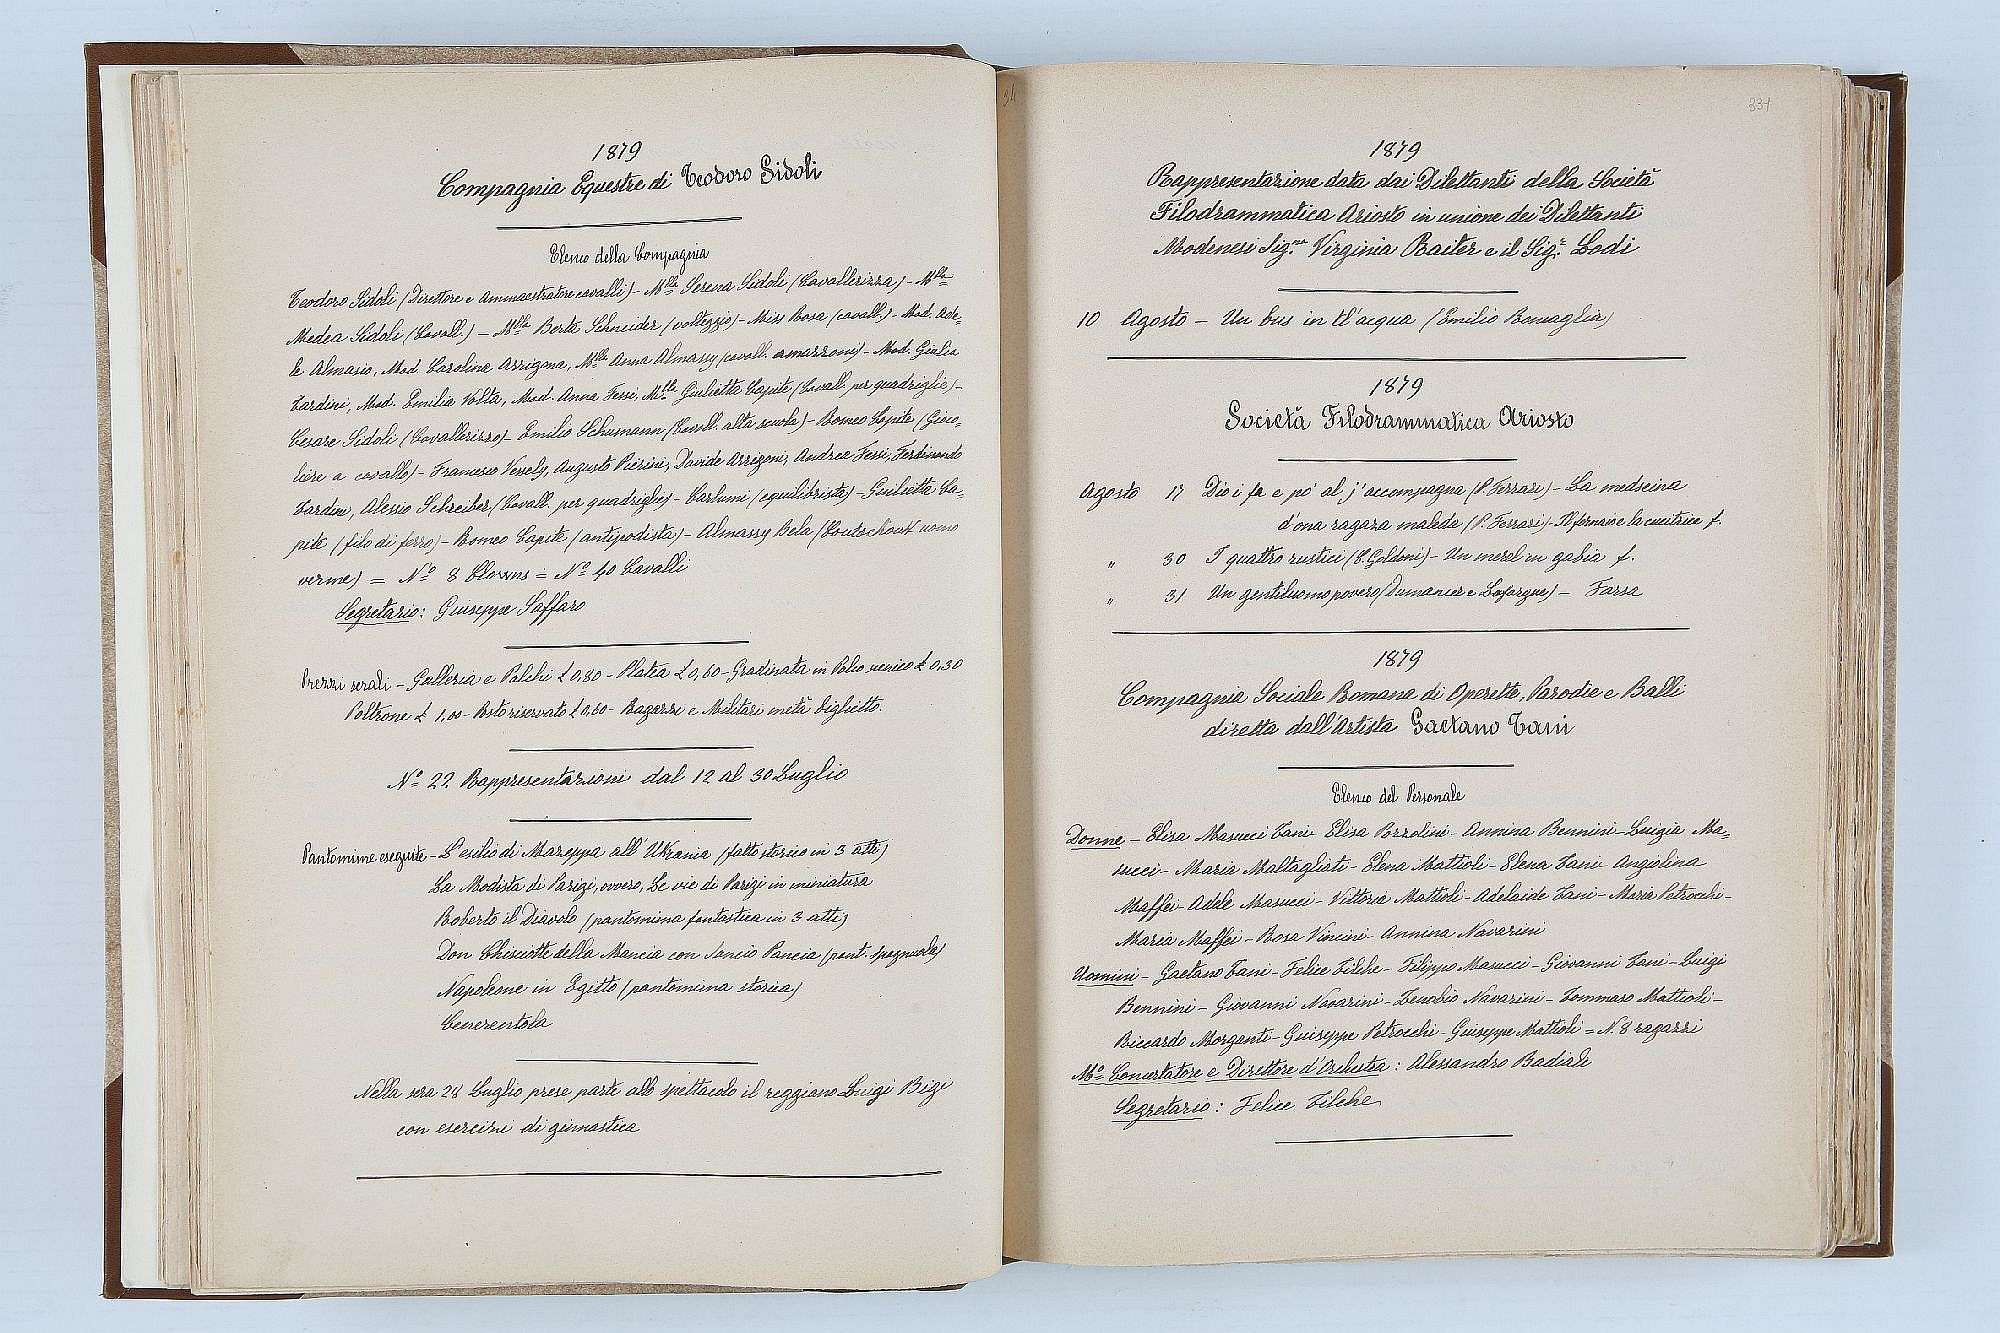 1879
Compagnia Equestre di Teodoro Sidoli
Elenco della Compagnia
Teodoro Sidoli (Direttore e ammaestratore cavalli) - M.lla Serena Sidoli (Cavallerizza) - M.lla
Medea Sidoli (Cavall.) - M.lla Berta Schneider (volteggio) - Miss Rosa (cavall.) - Mad. Ade-
le Almasio, Mad. Caroline Arrigona, M.lla Anna Almassy (cavall. amazzoni) - Mad. Giulia
Tardini, Mad. Emilia Volta, Mad. Anna Fessi, M.lla Giulietta Capite (Cavall. per quadriglie) -
Cesare Sidoli (Cavallerizzo) - Emilio Schumann (Cavall. alta scuola) - Romeo Capite (Gioco-
liere a cavallo) - Francesco Vessely, Augusto Pierini, Davide Arrigoni, Andrea Fessi, Ferdinando
Tardini, Alessio Schreiber (Cavall. per quadriglie) - Carlumi (equilibrista) - Giulietta Ca-
pite (filo di ferro) - Romeo Capite (antipodista) - Almassy Bela (Coutschouk uomo
verme) = N.o 8 Clowns = N.o 40 Cavalli
Segretario: Giuseppe Saffaro
Prezzi serali - Galleria e Palchi £ 0,80 - Platea £ 0,60 - Gradinata in Palco scenico £ 0,30
Poltrone £ 1,00 - Posto riservato £ 0,60 - Ragazzi e Militari metà biglietto.
N.o 22 Rappresentazioni dal 12 al 30 Luglio
Pantomime eseguite - L'esilio di Mazeppa all'Ukrania (fatto storico in 3 atti)
La Modista di Parigi, ovvero, Le vie di Parigi in miniatura
Roberto il Diavolo (pantomima fantastica in 3 atti)
Don Chisciotte della Mancia con Sancio Pancia (pant. spagnuola)
Napoleone in Egitto (pantomima storica)
Cenerentola
Nella sera 28 Luglio prese parte allo spettacolo il reggiano Luigi Bigi
con esercizi di ginnastica
331
1879
Rappresentazione data dai Dilettanti della Società
Filodrammatica Ariosto in unione dei Dilettanti
Modenesi Sig.na Virginia Baiter e il Sig.r Lodi
10 Agosto - Un bus in tl'acqua (Emilio Romaglia)
1879
Società Filodrammatica Ariosto
Agosto 17 Dio i fa e po' al j'accompagna (P. Ferrari) - La medseina
d'ona ragaza malada (P. Ferrari) - Il fornaio e la cucitrice f.
" 30 I quattro rustici (C. Goldoni) - Un merel in gabia f.
" 31 Un gentiluomo povero (Dumanier e Lafargue) - Farsa
1879
Compagnia Sociale Romana di Operette, Parodie e Balli
diretta dall'Artista Gaetano Tani
Elenco del Personale
Donne - Elisa Masucci Tani - Elisa Pozzolini - Annina Bennini - Luigia Ma-
succi - Maria Maltagliati - Elena Mattioli - Elena Tani - Angiolina
Maffei - Adele Masucci - Vittoria Mattioli - Adelaide Tani - Maria Petrocchi -
Maria Maffei - Rosa Vincini - Annina Navarini
Uomini - Gaetano Tani - Felice Tilche - Filippo Masucci - Giovanni Tani - Luigi
Bennini - Giovanni Navarini - Zenobio Navarini - Tommaso Mattioli -
Riccardo Morganti - Giuseppe Petrocchi - Giuseppe Mattioli = N. 8 ragazzi
M.o Concertatore e Direttore d'Orchestra: Alessandro Badiali
Segretario: Felice Tilche